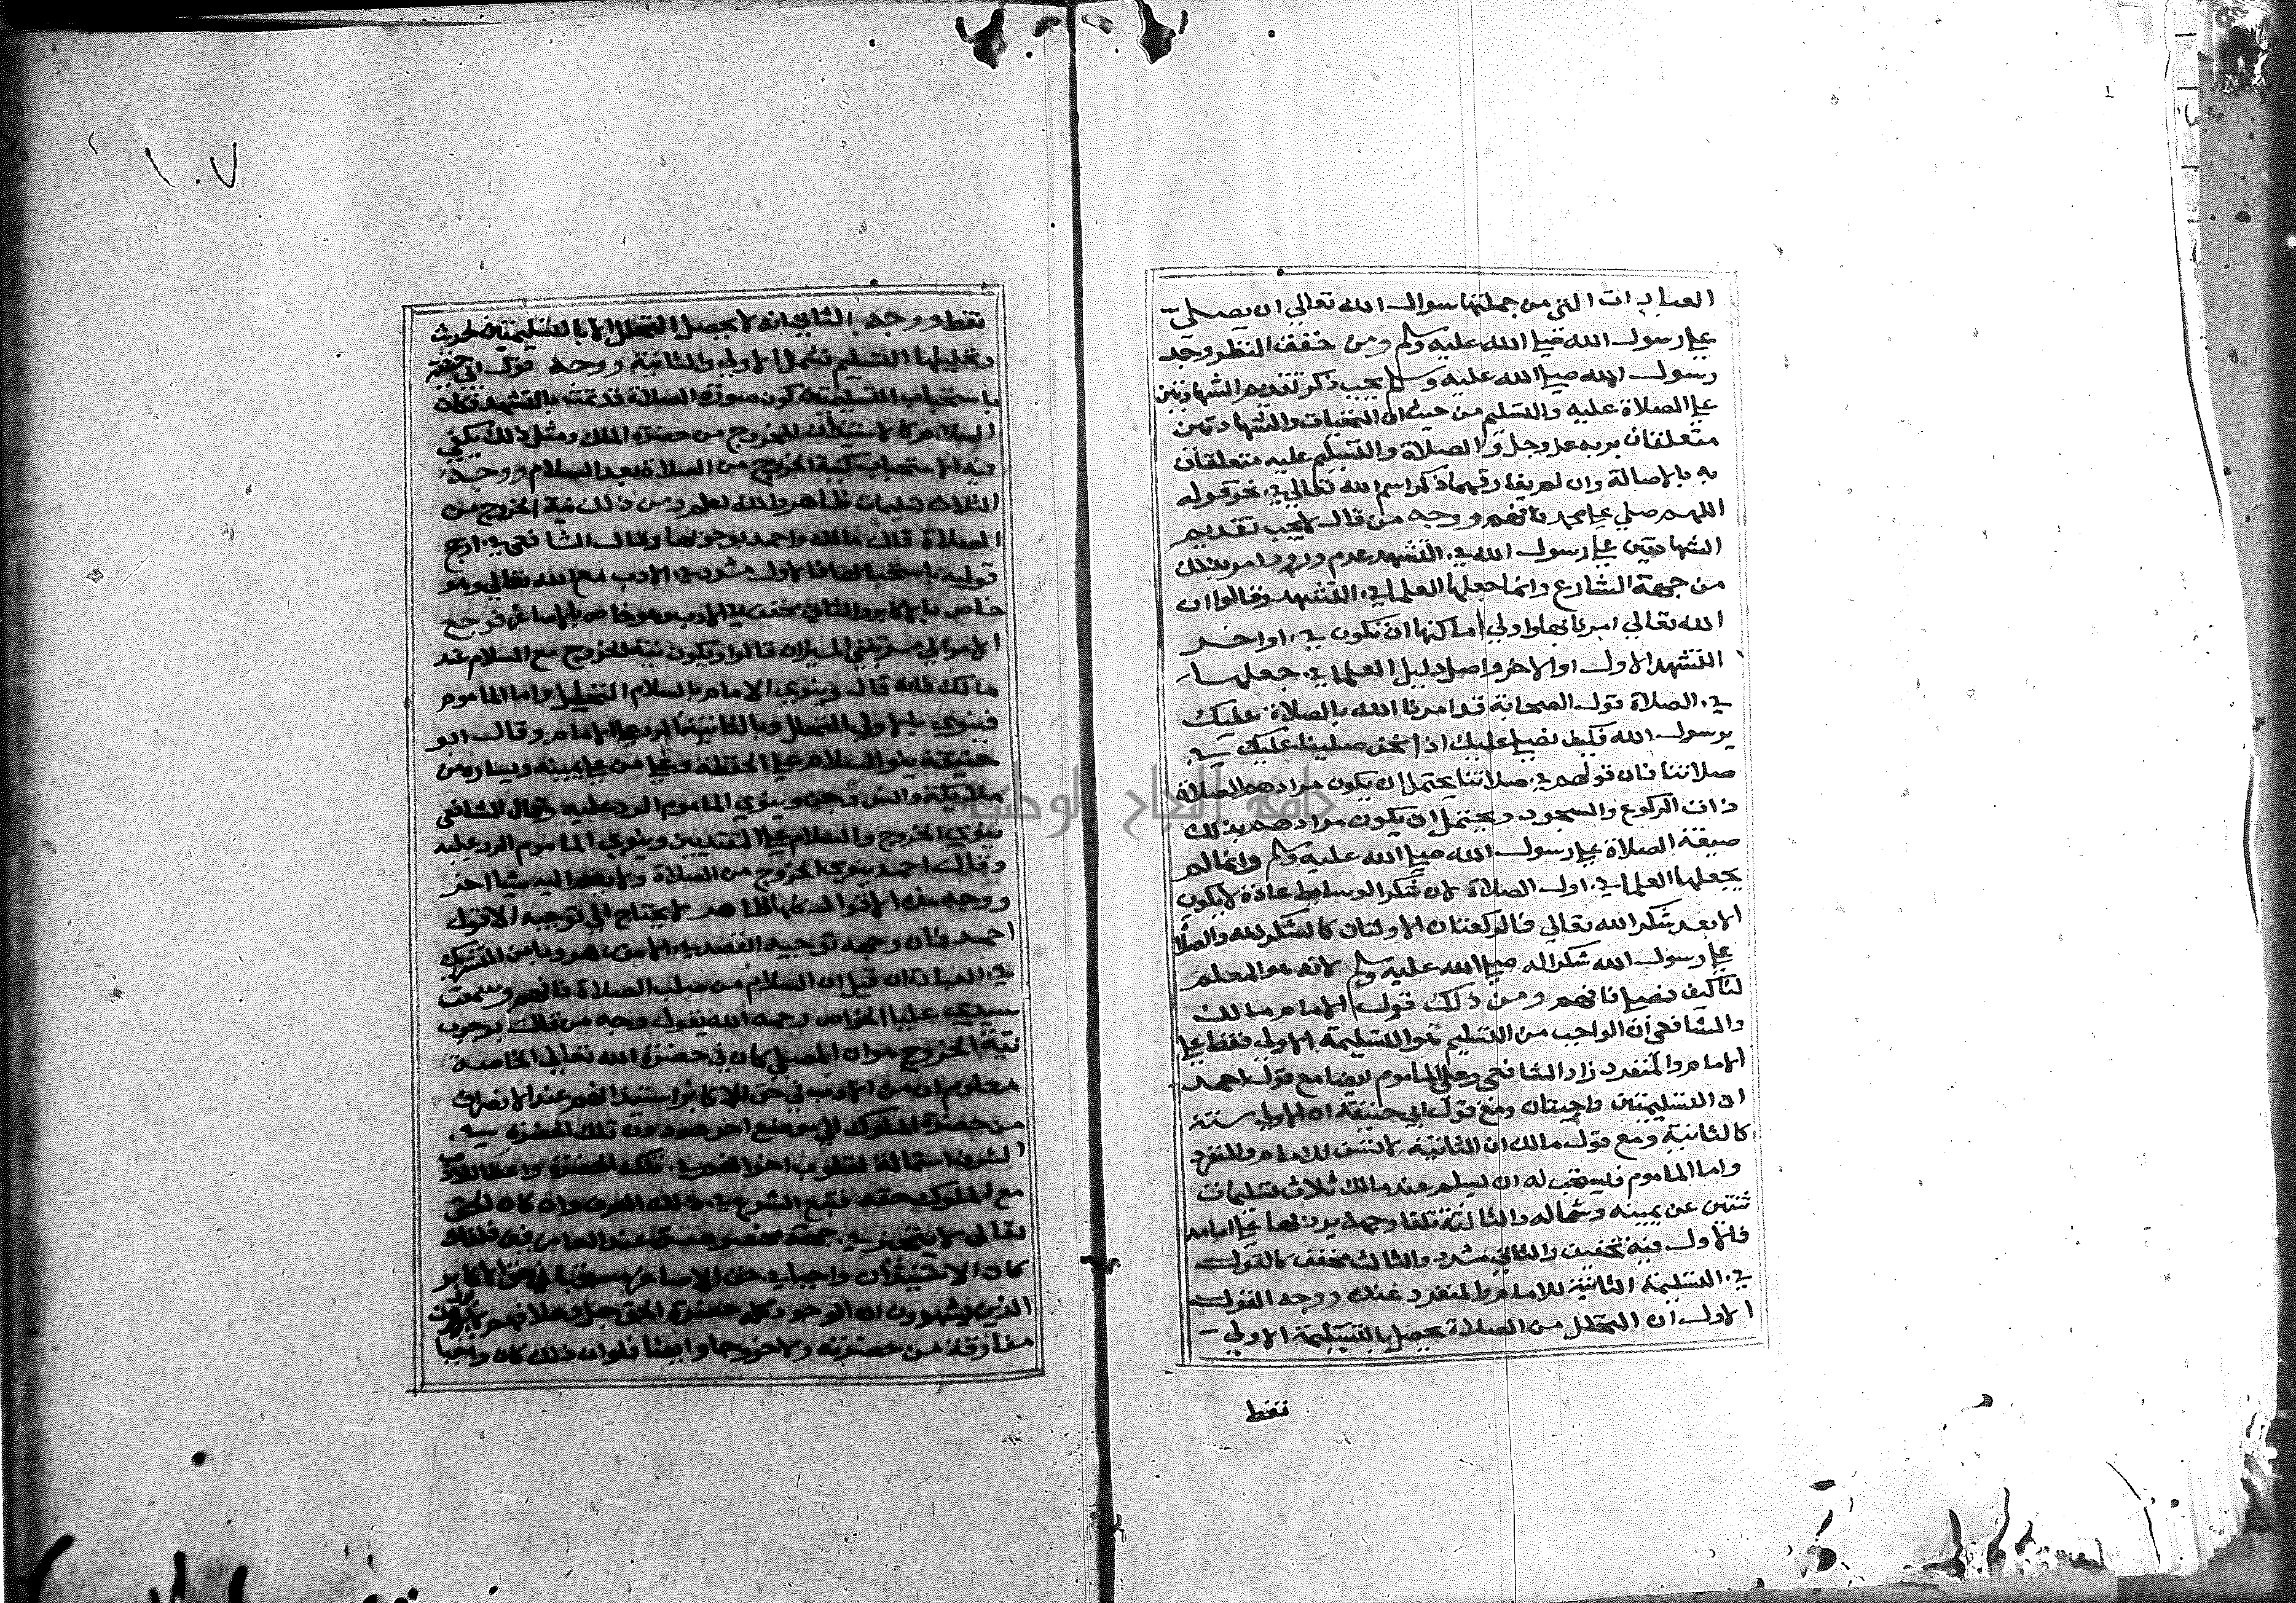 العبادات التي من جملتها سوال الله تعالي ان يصلي
علي رسول الله صلي الله عليه وسلم ومن خفف النظر وجد
رسول الله صلي الله عليه وسلم يجب ذكر تقديم الشهادتين
علي الصلاة عليه والتسليم من حيث ان التحيات والشهادتين
متعلقان بربه عز وجل والصلاة والتسليم عليه متعلقان
به بالاصالة وان لم يفارقهما ذكر اسم الله تعالي في نحو قوله
اللهم صلي علي محمد فافهم ووجه من قال لا يجب تقديم
الشهادتين علي رسول الله في التشهد عدم ورود امر بذلك
من جهة الشارع وانما جعلها العلما في التشهد وقالوا ان
الله تعالي امرنا بها واولي اماكنها ان تكون في اواخر
التشهد الاول او الاخر واصل دليل العلما في جعلها
في الصلاة قول الصحابة قد امرنا الله بالصلاة عليك
يرسول الله فكيف نصلي عليك اذا نحن صلينا عليك في
صلاتنا فان قولهم في صلاتنا يحتمل ان يكون مرادهم الصلاة
ذات الركوع والسجود ويحتمل ان يكون مرادهم بذلك
صيغة الصلاة علي رسول الله صلي الله عليه وسلم وانما لم
يجعلها العلما في اول الصلاة لان شكر الوسايط عادة لا يكون
الا بعد شكر الله تعالي فالركعتان الاولتان كالشكر لله والصلا
علي رسول الله شكرا له صلي الله عليه وسلم لانه هو المعلم
لنا كيف نصلي فافهم ومن ذلك قول الامام مالك
والشافعي ان الواجب من التسليم هو التسليمة الاولي فقط علي
الامام والمنفرد زاد الشافعي وعلي الماموم ايضا مع قول احمد
ان التسليمتين واجبتان ومع قول ابي حنيفة ان الاولي سنة
كالثانية ومع قول مالك ان الثانية لا تسن للامام والمنفرد
واما الماموم فيستحب له ان يسلم عند مالك ثلاث تسليمات
ثنتين عن يمينه وشماله والثالثة تلقا وجهه يردها علي امامه
فالاول فيه تخفيف والثاني مشدد والثالث مخفف كالقول
في التسليمة الثانية للامام والمنفرد عنك ووجه القول
الاول ان التحلل من الصلاة يحصل بالتسليمة الاولي
فقط
١٠٧
فقط ووجه الثاني انه لا يحصل التحلل الا بالتسليمتين لحديث
وتحليلها التسليم فشمل الاولي والثانية ووجه قول ابي حنيفة
باستحباب التسليمتين كون صورة الصلاة قد تمت بالتشهد فكان
السلام كالاستيذان للخروج من حضرة الملك ومثل ذلك يكفي
فيه الاستحباب كنية الخروج من الصلاة بعد السلام ووجه
الثلاث تسليمات ظاهر والله اعلم ومن ذلك نية الخروج من
الصلاة قال مالك واحمد بوجوبها وقال الشافعي في ارجح
قوليه باستحبابها فالاول مشدد في الادب مع الله تعالي وهو
خاص بالاكابر والثاني مخفف في الادب وهو خاص بالاصاغر فرجع
الامر الي مرتبتي الميزان قالوا ويكون نية الخروج مع السلام عند
مالك فانه قال وينوي الامام بالسلام التحلل واما الماموم
فينوي بالاولي التحلل وبالثانية الرد علي الامام وقال ابو
حنيفة ينوي السلام علي الحفظة وعلي من علي يمينه ويساره من
ملايكة وانس وجن وينوي الماموم الرد عليه وقال الشافعي
ينوي الخروج والسلام علي المقتدين وينوي الماموم الرد عليه
وقال احمد ينوي الخروج من الصلاة ولا يضم اليه شيا اخر
ووجه هذه الاقوال كلها ظاهر لا يحتاج الي توجيه الا قول
احمد فان وجهه توجيه القصد الي الامر، هروبا من التشريك
في العبادة ان قيل ان السلام من صلب الصلاة فافهم وسمعت
سيدي عليا الخواص رحمه الله يقول وجه من قال بوجوب
نية الخروج هو ان المصلي كان في حضرة الله تعالي الخاصة
ومعلوم ان من الادب في حق الاكابر استيذانهم عند الانصراف
من حضرة الملوك الي موضع اخر هو دون تلك الحضرة في
الشرف استمالة لقلوب اهل تلك الحضرة واعطا للادب
مع الملوك حقه فتبع الشرع في ذلك العرف وان كان الحق
تعالي لا يتحيز في جهة مخصوصة عند العارفين فلذلك
كان الاستيذان واجبا في حق الاصاغر مستحبا في حق الاكابر
الذين يشهدون ان الوجود كله حضرة الحق جل وعلا فهم لا يرون
مفارقة من حضرته ولا خروجا وايضا فلو ان ذلك كان واجبا